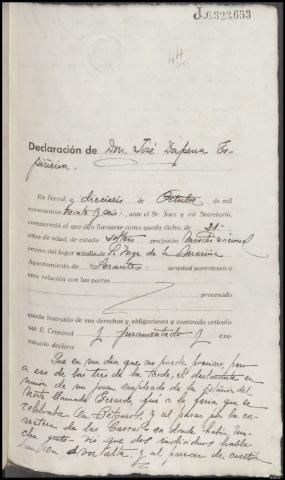 J.6.323.653
44
Declaración de Don José Dapena Es-
piñeira.
En Ferrol, a dieciseis de Octubre de mil
novecientos treinta y seis, ante el Sr. Juez y mi Secretario,
compareció el que dijo llamarse como queda dicho, de 21
años de edad, de estado soltero profesión Maestro nacional
vecino del lugar S. Jorge de la Marina
Ayuntamiento de Serantes amistad parentesco u
otra relación con las partes
procesado
queda instruído de sus derechos y obligaciones y contenido artículo
446 E. Criminal y juramentado y exa-
minado declara:
Que en un dia que no puede precisar pero
a eso de las tres de la tarde, el declarante en
unión de un joven empleado de la del
Norte llamado Gerardo, fué a la feria que se
celebraba en y al pasar por la ca-
rretera de las en donde había mu-
cha gente vió que dos individuos habla-
ban en voz alta, y al parecer de cuestion